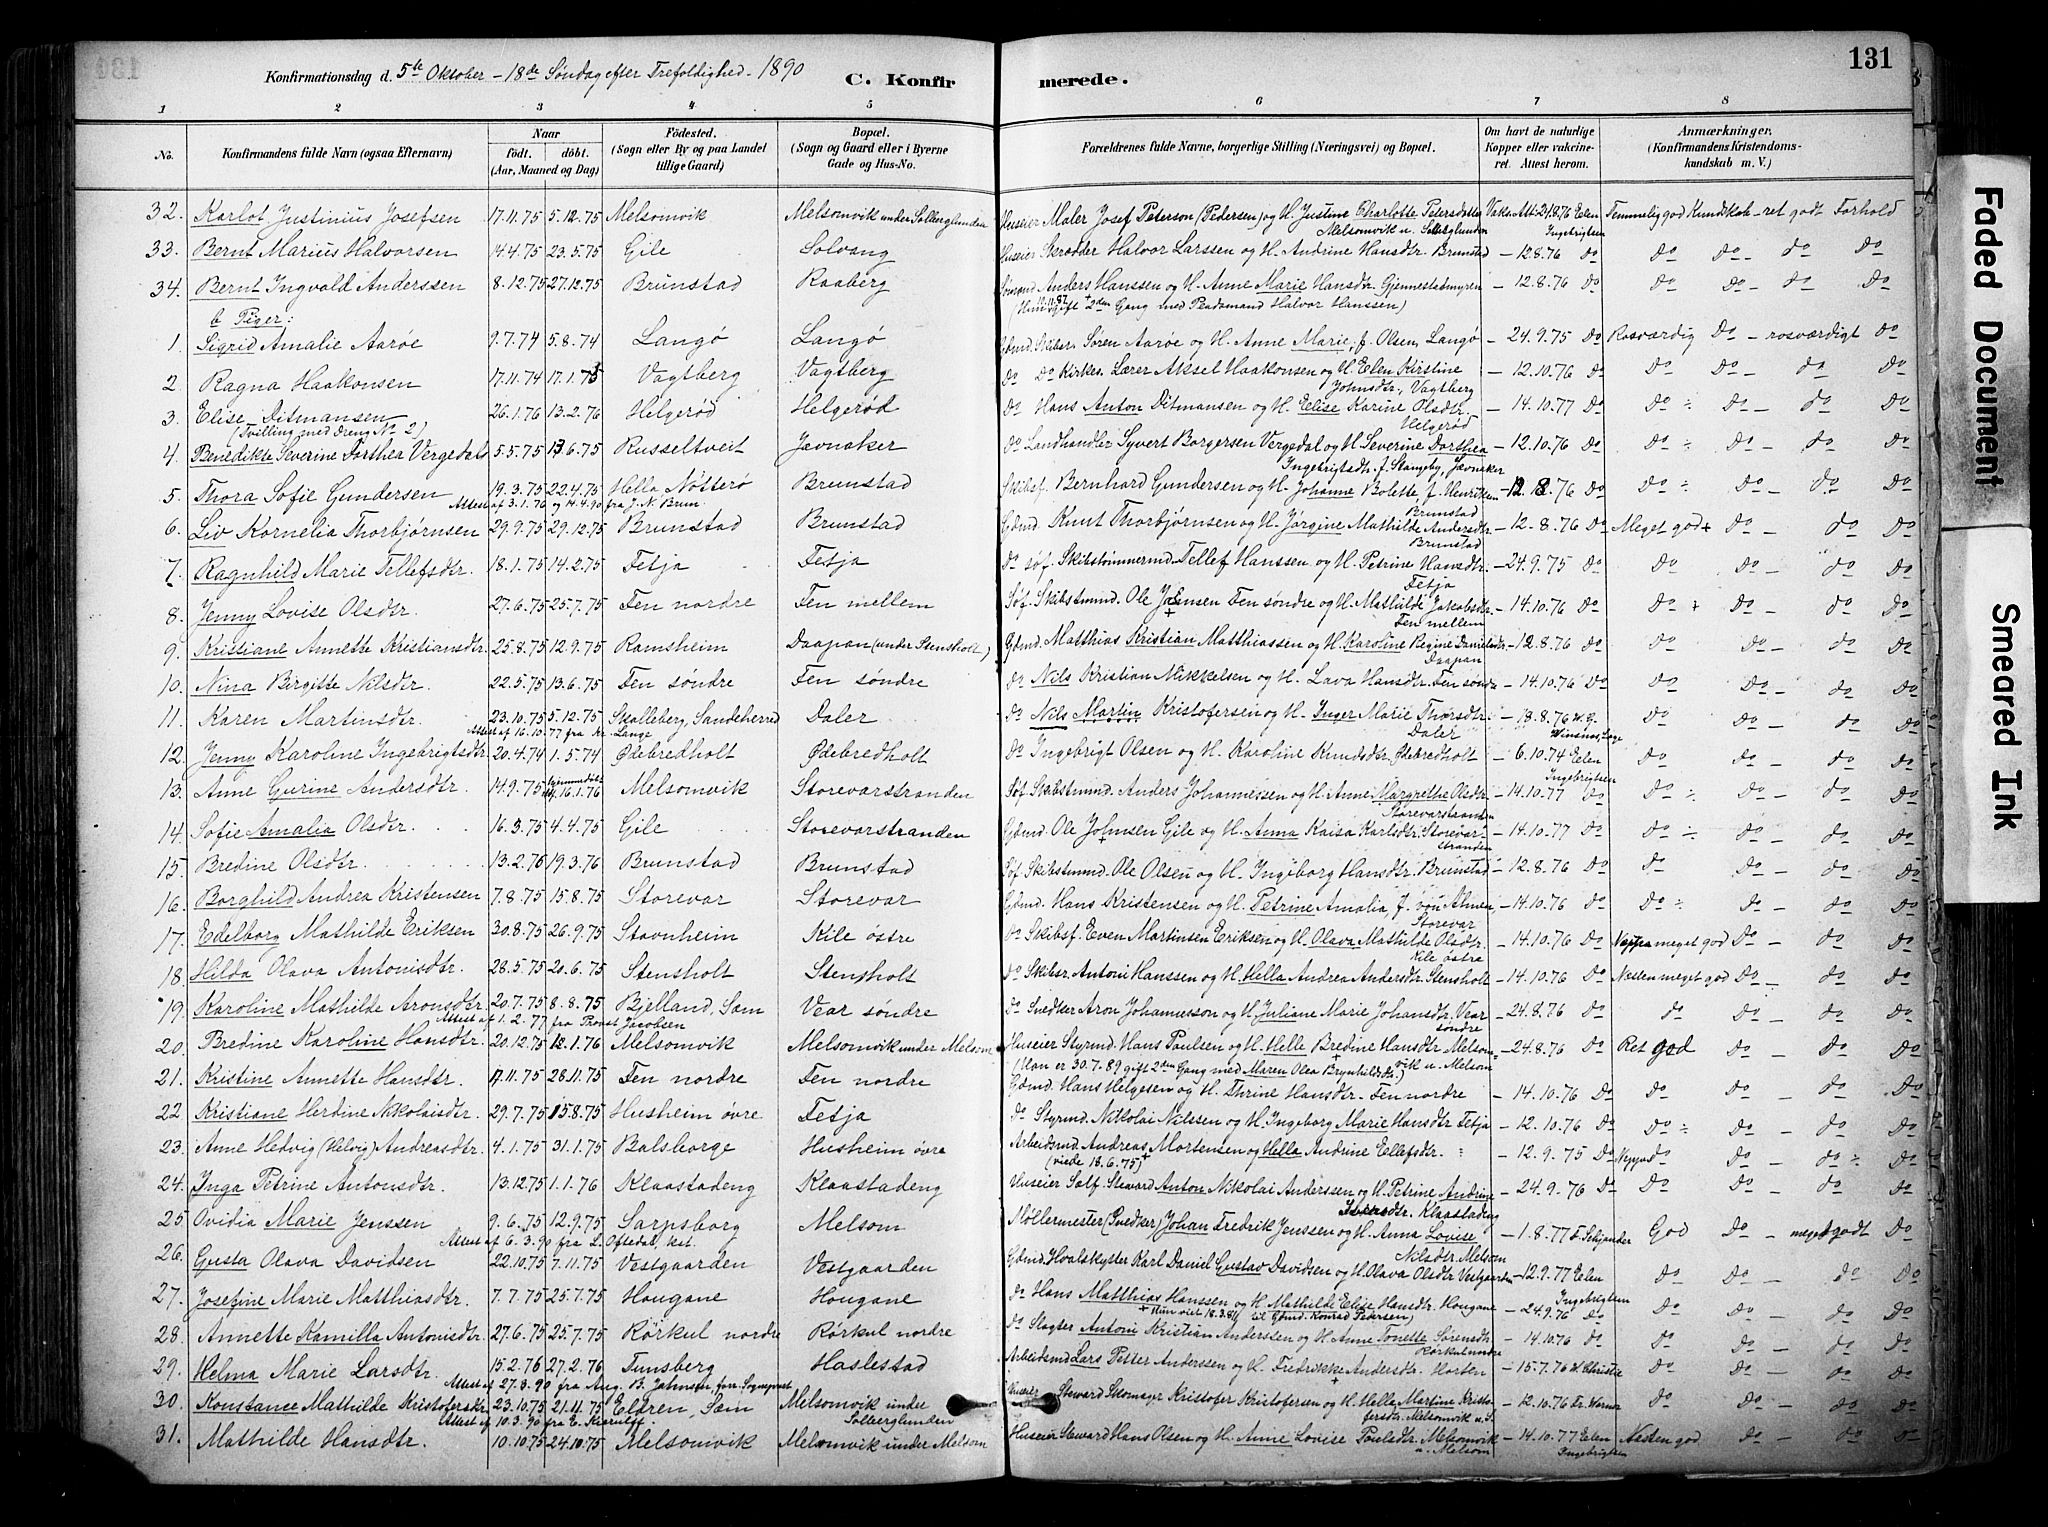 131
Konfirmationsdag d. 5te Oktober – 18de Søndag efter Trefoldighed. 1890 C. Konfirmerede.
1 2 3 4 5 6 7 8
No. Konfirmandens fulde Navn (ogsaa Efternavn) Naar født. døbt. (Aar, Maaned og Dag) Fødested. (Sogn eller By og paa Landet tillige Gaard) Bopæl. (Sogn og Gaard eller i Byerne Gade og Hus-No.) Forældrenes fulde Navne, borgerlige Stilling (Næringsvei) og Bopæl. Om havt de naturlige Kopper eller vakcineret. Attest herom. Anmærkninger, (Konfirmandens Kristendomskundskab m. V.)
32. Karlot Justinius Josefsen 17.11.75 5.12.75 Melsomvik Melsomvik under Solberglunden Huseier Maler Josef Peterson (Pedersen) og H. Justine Charlotte Petersdatter Melsomvik u. Solberglunden Vaks. Att. 24.8.76 Elen Ingebrigtsen Temmelig god Kundskab – ret godt Forhold
33. Bernt Marius Halvorsen 14.4.75 23.5.75 Gile Solvang Huseier Skrædder Halvor Larssen og H. Andrine Hansdtr. Brunstad – 12.8.76 Do Do Do – do Do
34. Bernt Ingvald Anderssen 8.12.75 27.12.75 Brunstad Raaberg Anders Hanssen og H. Anne Marie Hansdtr. Gjennestadmyren – 12.8.76 Do Do Do – do Do
(Hun gift 2den Gang med Pladsmand Halvor Hanssen)
b Piger:
1. Sigrid Amalie Aarøe 9.7.74 5.8.74 Langø Langø Gdmd. Skibsr. Søren Aarøe og H. Anne Marie, f. Olsen, Langø – 24.9.75 Do Rosværdig Do – rosværdigt Do
2. Ragna Haakonsen 17.11.74 17.1.75 Vagtberg Vagtberg Do Do Kirkes. Lærer Aksel Haakonsen og H. Elen Kirstine Johnsdtr., Vagtberg – 12.10.76 Do Do Do – do Do
3. Elise Ditmansen (Tvilling med Dreng No 2) 26.1.76 13.2.76 Helgerød Helgerød Do Hans Anton Ditmansen og H. Elise Karine Olsdtr. Helgerød – 14.10.77 Do Do ÷ Do – do Do
4. Benedikte Severine Dorthea Vergedals 5.5.75 13.6.75 Russeltveit Jævnaker Do Landhandler Syvert Borgersen Vergedal og H. Severine Dorthea Ingebrigtsdtr. f. Stangeby, Jævnaker – 12.10.76 Do Do ÷ Do – do Do
5. Thora Sofie Gundersen 19.3.75 22.4.75 Hella Nøtterø Brunstad Skibsf. Bernhard Gundersen og H. Johanne Bolette f. Henriksen Brunstad – 12.8.76 Do Do ÷ Do – do Do
Attest af 3.1.76 og 14.4.90 fra J. N. Brun.
6. Liv Kornelia Thorbjørnsen 29.9.75 29.12.75 Brunstad Brunstad Gdmd. Knut Thorbjørnsen og H. Jørgine Mathilde Andersdtr. Brunstad – 12.8.76 Do Meget god + Do – do Do
7. Ragnhild Marie Tellefsdtr. 18.1.75 14.2.75 Fetja Fetja Do søf. Skibstømmermd. Tellef Hanssen og H. Petrine Hansdtr. Fetja – 24.9.75 Do Do Do – do Do
8. Jenny Lovise Olsdtr. 27.6.75 25.7.75 Fen nordre Fen mellem Søf. Skibstmmd. Ole Johnsen Fen søndre og H. Mathilde Jakobsdtr. Fen mellem – 14.10.76 Do Do + Do – do Do
9. Kristiane Annette Kristiansdtr. 25.8.75 12.9.75 Ramsheim Daapan (under Stensholt) Gdmd. Matthias Kristian Matthiassen og H. Karoline Regine Danielsdtr. Daapan – 12.8.76 Do Do Do – do Do
10. Nina Birgitte Nilsdtr. 22.5.75 13.6.75 Fen søndre Fen søndre Do Nils Kristian Mikkelsen og H. Lava Hansdtr. Fen søndre – 14.10.76 Do Do Do – do Do
11. Karen Martinsdtr. 23.10.75 5.12.75 Skalleberg, Sandeherred Daler Do Nils Martin Kristofersen og H. Inger Marie Thorsdtr. Daler – 18.8.76 Do Do – do Do
Attest af 16.10.77 fra Kr. Lange
12. Jenny Karoline Ingebrigtsdtr. 20.4.74 1.5.74 Ødebredholt Ødebredholt Do Ingebrigt Olsen og H. Karoline Knudsdtr. Ødebredholt – 6.10.74 Elen Ingebrigtsen Do Do – do Do
13. Anne Gurine Andersdtr. 14.9.75 16.1.76 Melsomvik Storevarstranden Søf. Skibstmmd. Anders Johannessen og H. Anne Margrethe Olsdtr. Storevarstranden – 14.10.77 Do Do ÷ Do – do Do
14. Sofie Amalia Olsdtr. 16.3.75 4.4.75 Gile Storevarstranden Gdmd. Ole Johnsen Gile og H. Anna Kaisa Karlsdtr. Storevarstranden – 14.10.77 Do Do ÷ Do – do Do
15. Bredine Olsdtr. 13.2.76 19.3.76 Brunstad Brunstad Søf. Skibstmmd. Ole Olsen og H. Ingeborg Hansdtr. Brunstad – 12.8.76 Do Do Do – do Do
16. Borghild Andrea Kristensen 7.8.75 15.8.75 Storevar Storevar Gdmd. Hans Kristensen og H. Petrine Amalia f. von Ahnen, Storevar – 14.10.76 Do Do ÷ Do – do Do
17. Edelborg Mathilde Eriksen 30.8.75 26.9.75 Stavnheim Kile østre Do Skibsf. Even Martinsen Eriksen og H. Olava Mathilde Olsdtr. Kile østre – 14.10.76 Do Neppe meget god Do – do Do
18. Hilda Olava Antonisdtr. 28.5.75 20.6.75 Stensholt Stensholt Do Skibsr. Antoni Hanssen og H. Hella Andrea Andersdtr. Stensholt – 14.10.76 Do Næsten meget god Do – do Do
19. Karoline Mathilde Aronsdtr. 20.7.75 8.8.75 Bjelland, Sem Vear søndre Do Snedker Aron Johannesson og H. Juliane Marie Johansdtr. Vear søndre – 24.8.76 Do do Do – do Do
Attest af 1.2.77 fra Provst Jacobsen
20. Bredine Karoline Hansdtr. 20.12.75 12.1.76 Melsomvik Melsomvik under Melsom Huseier Styrmd. Hans Paulsen og H. Helle Bredine Hansdtr. Melsomvik u. Melsom – 24.8.76 Do Ret god Do – do Do
(Han er 30.7.89 gift 2den Gang med Maren Olea Brynhildsdtr.)
21. Kristine Annette Hansdtr. 17.11.75 28.11.75 Fen nordre Fen nordre Gdmd. Hans Helgesen og H. Thrine Hansdtr. Fen nordre – 14.10.76 Do Do Do – do Do
22 Kristiane Herdine Nikolaisdtr. 29.7.75 15.8.75 Husheim øvre Fetja Do Styrmd. Nikolai Nilssen og H. Ingeborg Marie Hansdtr Fetja – 12.10.76 Do Do ÷ Do – do Do
23. Anne Hedvig (Helvig) Andreasdtr. 4.1.75 31.1.75 Balsborge Husheim øvre Arbeidsmd. Andreas Mortensen og Hella Andrine Ellefsdtr. – 12.9.75 Do Neppe do Do – do ÷ Do
(viede 18.6.75)
24. Inga Petrine Antonsdtr. 13.12.75 1.1.76 Klaastadeng Klaastadeng Huseier Sølf. Steward Anton Nikolai Anderssen og H. Petrine Andrine Klaastadeng – 24.9.76 Do Do Do – do Do
25 Ovidia Marie Jenssen 9.6.75 12.9.75 Sarpsborg Melsom Møllermester (Snedker) Johan Fredrik Jenssen og H. Anna Lovise Nilsdtr. Melsom – 1.8.77 God Do – meget godt Do
Attest af 6.3.90 fra L. Oftedal, kst.
26. Gusta Olava Davidsen 22.10.75 7.11.75 Vestgaarden Vestgaarden Gdmd. Hvalskytter Karl Daniel Gustav Davidsen og H. Olava Olsdtr Vestgaarden – 12.9.77 Elen Ingebrigtsen Do Do – do Do
27. Josefine Marie Matthiasdtr. 7.7.75 25.7.75 Hougane Hougane Do Hans Matthias Hanssen og H. Mathilde Elise Hansdtr. Hougane – 24.9.76 Do Do Do – do Do
+ Hun viet 18.3.86 til Gdmd. Konrad Pedersen)
28. Annette Kamilla Antonisdtr. 27.6.75 25.7.75 Rørkul nordre Rørkul nordre Do Slagter Antoni Kristian Anderssen og H. Anne Tonette Sørensdtr. Rørkul nordre – 14.10.76 Do Do Do – do Do
29. Helma Marie Larsdtr. 15.2.76 27.2.76 Tunsberg Haslestad Arbeidsmd Lars Petter Anderssen og H. Fredrikke Andersdtr. Horten – 15.7.76 H. Christie Do Do – do Do
Attest af 27.8.90 fra Aug. B. Johnsen, forr. Sognepræst
30. Konstance Mathilde Kristofersdtr. 23.10.75 21.11.75 Elfren, Sem Melsomvik under Solberglunden Huseier Steward Skomager Kristofer Kristofersen og H. Hella Martine Kristofersdtr. Melsomvik u. S. – 12.10.76 Do Do – do Do
Attest af 10.3.90 fra E. Kierulff.
31. Mathilde Hansdtr. 10.10.75 24.10.75 Melsomvik Melsomvik under Melsom Huseier Steward Hans Olsen og H. Anne Lovise Paulsdtr. Melsomvik u. Melsom – 14.10.77 Elen Ingebrigtsen Næsten god Do – do Do
Faded Document
Smeared Ink